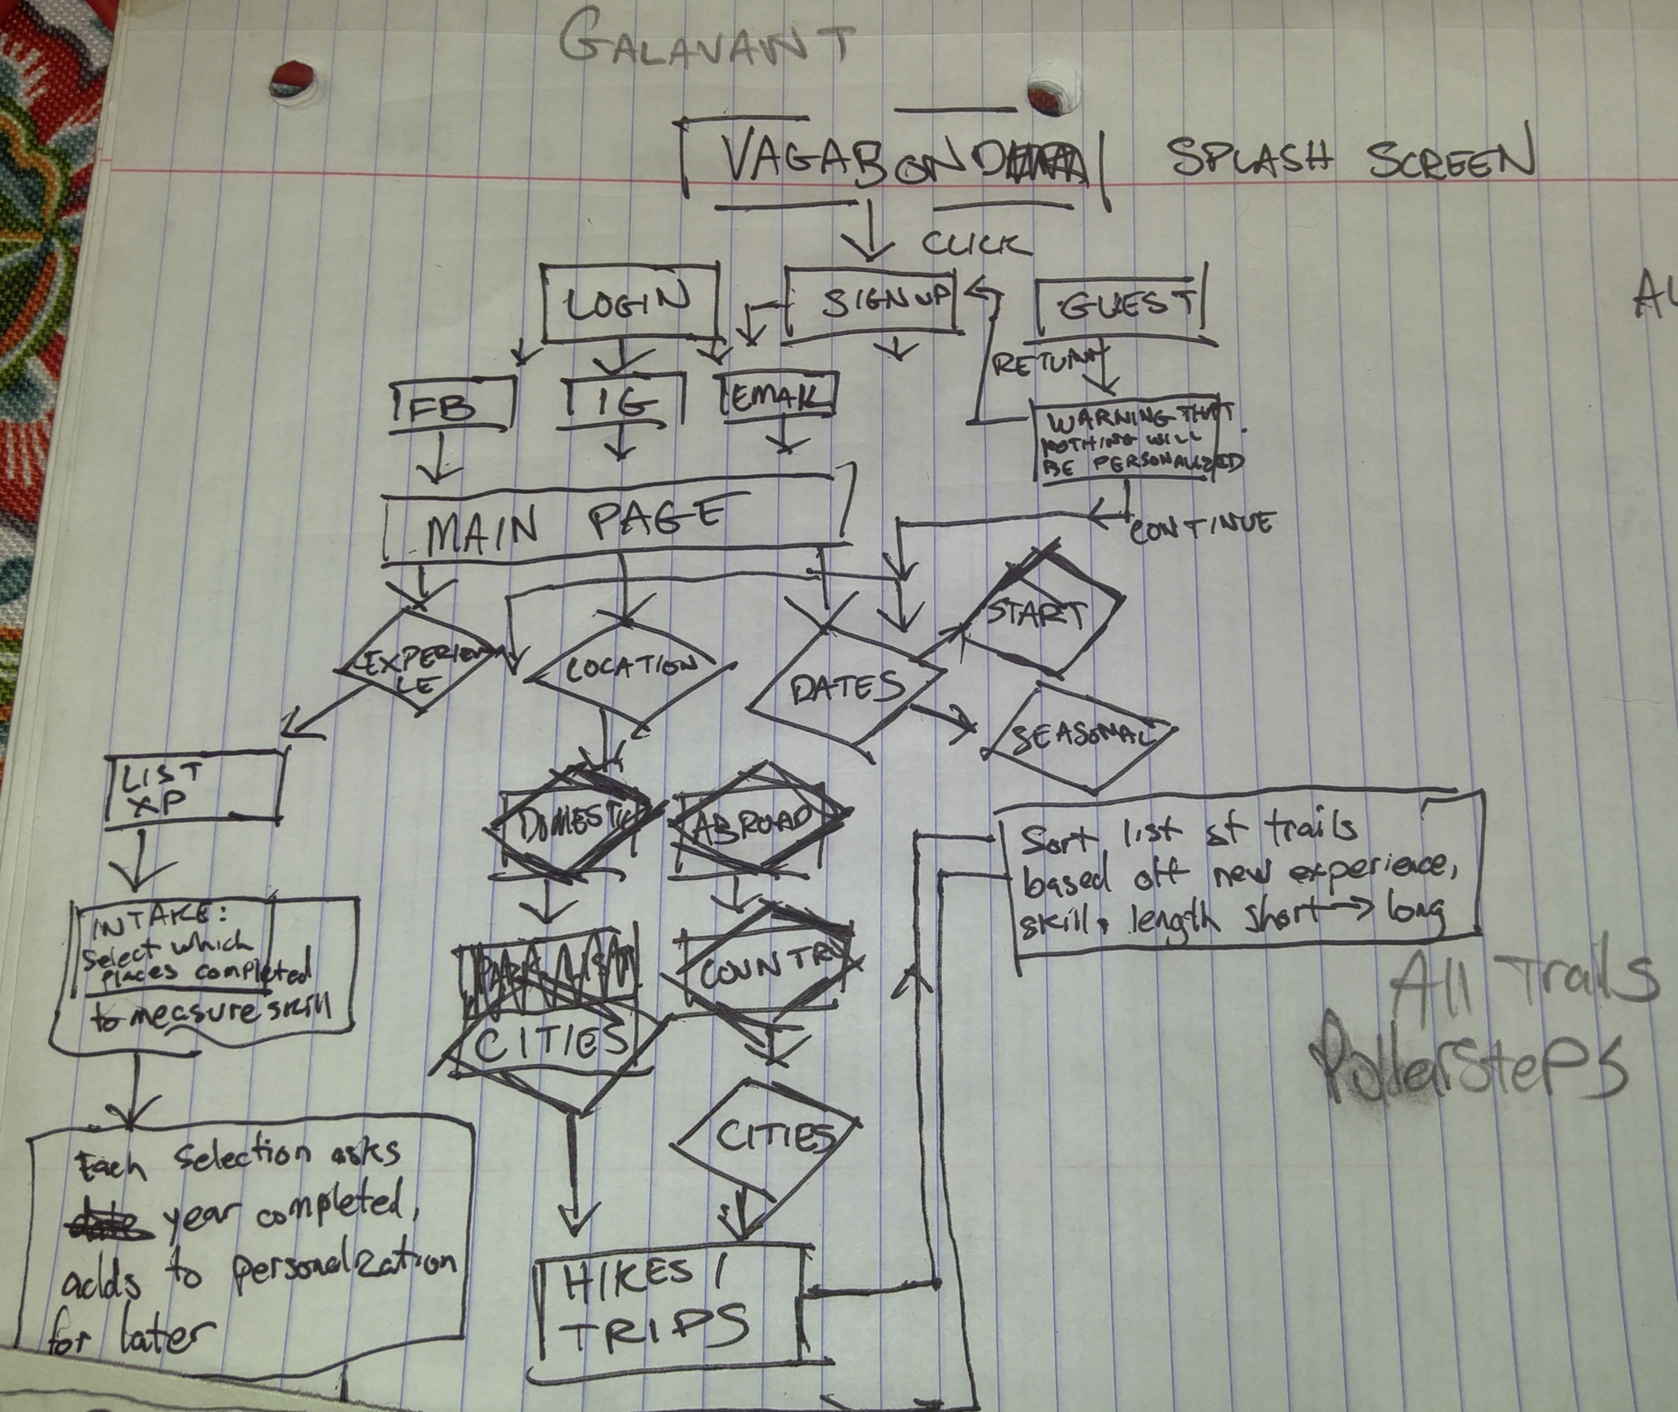 GALAVANT
VAGABOND
SPLASH SCREEN
CLICK
LOGIN
SIGN UP
GUEST
AL
RETURN
FB
IG
EMAIL
WARNING THAT
NOTHING WILL
BE PERSONALIZED
MAIN PAGE
CONTINUE
START
EXPERIEN
CE
LOCATION
DATES
SEASONAL
LIST
XP
DOMESTIC
ABROAD
Sort list of trails
based off new experience,
skill, length short → long
INTAKE:
Select which
places completed
to measure skill
COUNTRY
CITIES
All Trails
PollarstePs
CITIES
Each selection asks
date year completed,
adds to personalization
for later
HIKES /
TRIPS